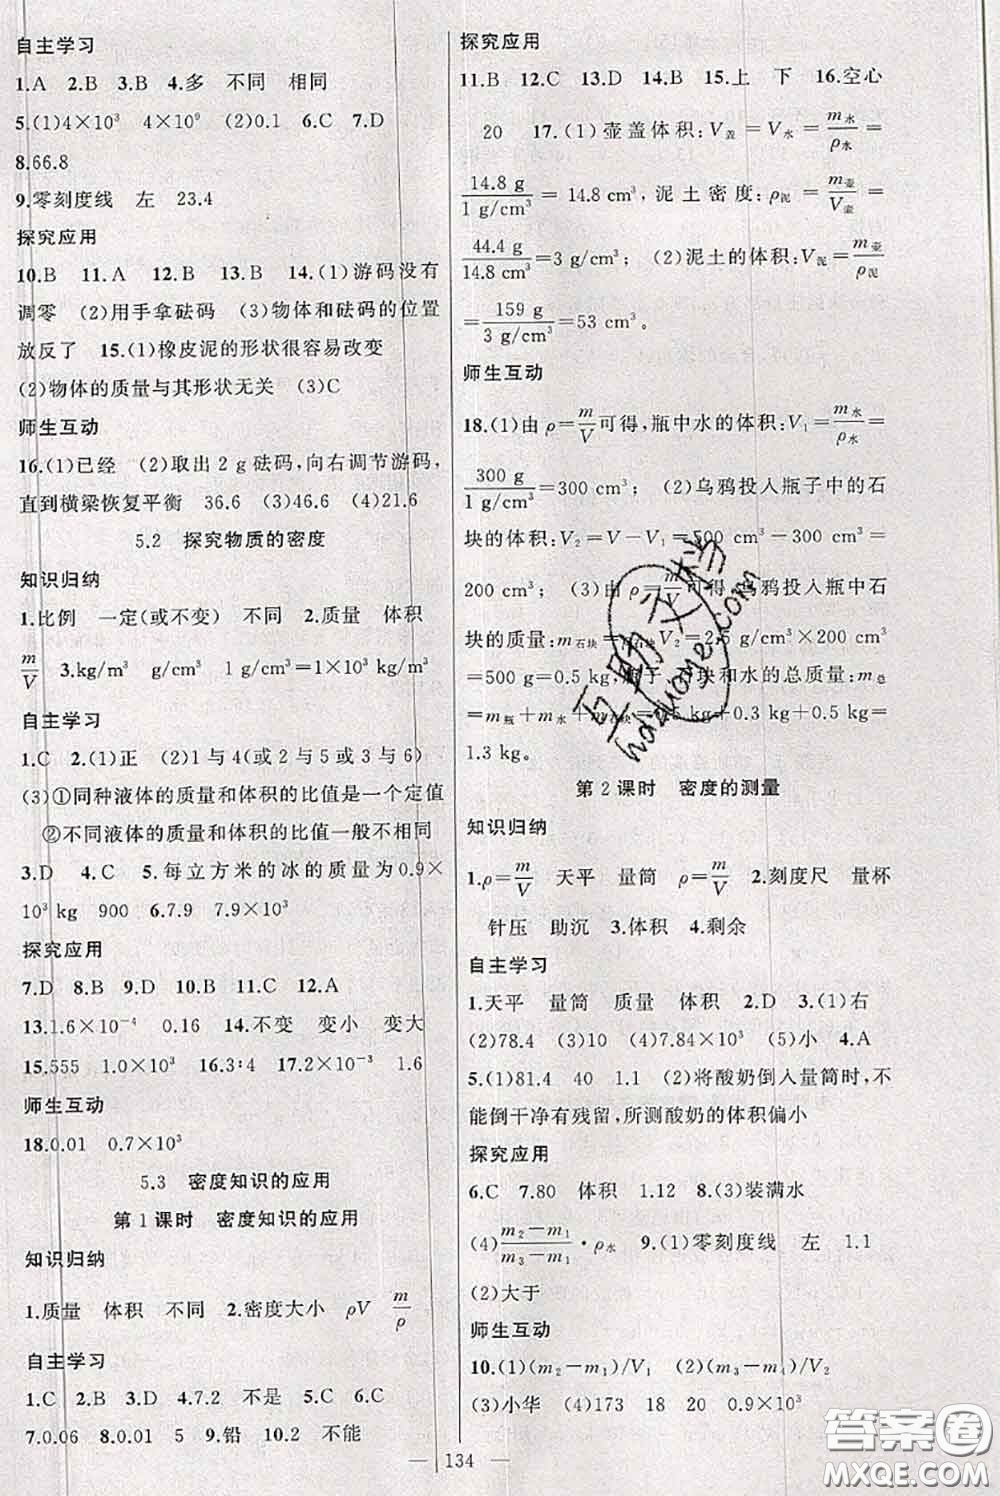 自主学习
1.A 2.B 3.B 4.多 不同 相同
5.(1)4×10³ 4×10⁹ (2)0.1 6.C 7.D
8.66.8
9.零刻度线 左 23.4
探究应用
10.B 11.A 12.B 13.B 14.(1)游码没有
调零 (2)用手拿砝码 (3)物体和砝码的位置
放反了 15.(1)橡皮泥的形状很容易改变
(2)物体的质量与其形状无关 (3)C
师生互动
16.(1)已经 (2)取出 2 g 砝码,向右调节游码,
直到横梁恢复平衡 36.6 (3)46.6 (4)21.6
5.2 探究物质的密度
知识归纳
1.比例 一定(或不变) 不同 2.质量 体积
m/V 3.kg/m³ g/cm³ 1 g/cm³=1×10³ kg/m³
自主学习
1.C 2.(1)正 (2)1 与 4(或 2 与 5 或 3 与 6)
(3)①同种液体的质量和体积的比值是一个定值
②不同液体的质量和体积的比值一般不相同
3.D 4.C 5.每立方米的冰的质量为0.9×
10³ kg 900 6.7.9 7.9×10³
探究应用
7.D 8.B 9.D 10.B 11.C 12.A
13.1.6×10⁻⁴ 0.16 14.不变 变小 变大
15.555 1.0×10³ 16.3:4 17.2×10⁻³ 1.6
师生互动
18.0.01 0.7×10³
5.3 密度知识的应用
第 1 课时 密度知识的应用
知识归纳
1.质量 体积 不同 2.密度大小 ρV m/ρ
自主学习
1.C 2.B 3.D 4.7.2 不是 5.C 6.C
7.0.06 8.0.01 5 9.铅 10.2 不能
探究应用
11.B 12.C 13.D 14.B 15.上 下 16.空心
20 17.(1)壶盖体积:V盖=V水=m水/ρ水=
14.8 g/1 g/cm³=14.8 cm³,泥土密度:ρ泥=m壶/V壶=
44.4 g/14.8 cm³=3 g/cm³;(2)泥土的体积:V泥=m壶/ρ泥
=159 g/3 g/cm³=53 cm³。
师生互动
18.(1)由 ρ=m/V可得,瓶中水的体积:V₁=m水/ρ水=
300 g/1 g/cm³=300 cm³; (2)乌鸦投入瓶子中的石
块的体积:V₂=V-V₁=500 cm³-300 cm³=
200 cm³; (3)由 ρ=m/V可得,乌鸦投入瓶中石
块的质量:m石块=ρ石块V₂=2.5 g/cm³×200 cm³
=500 g=0.5 kg,块和水的总质量:m总
=m瓶+m水+m石块=0.5 kg+0.3 kg+0.5 kg=
1.3 kg。
第 2 课时 密度的测量
知识归纳
1.ρ=m/V 天平 量筒 ρ=m/V 2.刻度尺 量杯
针压 助沉 3.体积 4.剩余
自主学习
1.天平 量筒 质量 体积 2.D 3.(1)右
(2)78.4 (3)10 (4)7.84×10³ (5)小 4.A
5.(1)81.4 40 1.1 (2)将酸奶倒入量筒时,不
能倒干净有残留,所测酸奶的体积偏小
探究应用
6.C 7.80 体积 1.12 8.(3)装满水
(4)(m₂-m₁)/(m₃-m₁)·ρ水 9.(1)零刻度线 左 1.1
(2)大于
师生互动
10.(1)(m₂-m₁)/V₁ (2)(m₃-m₄)/V₂
(3)小华 (4)173 18 20 0.9×10³
134
互助文档
huzuoye.com
答案圈
MXQE.COM